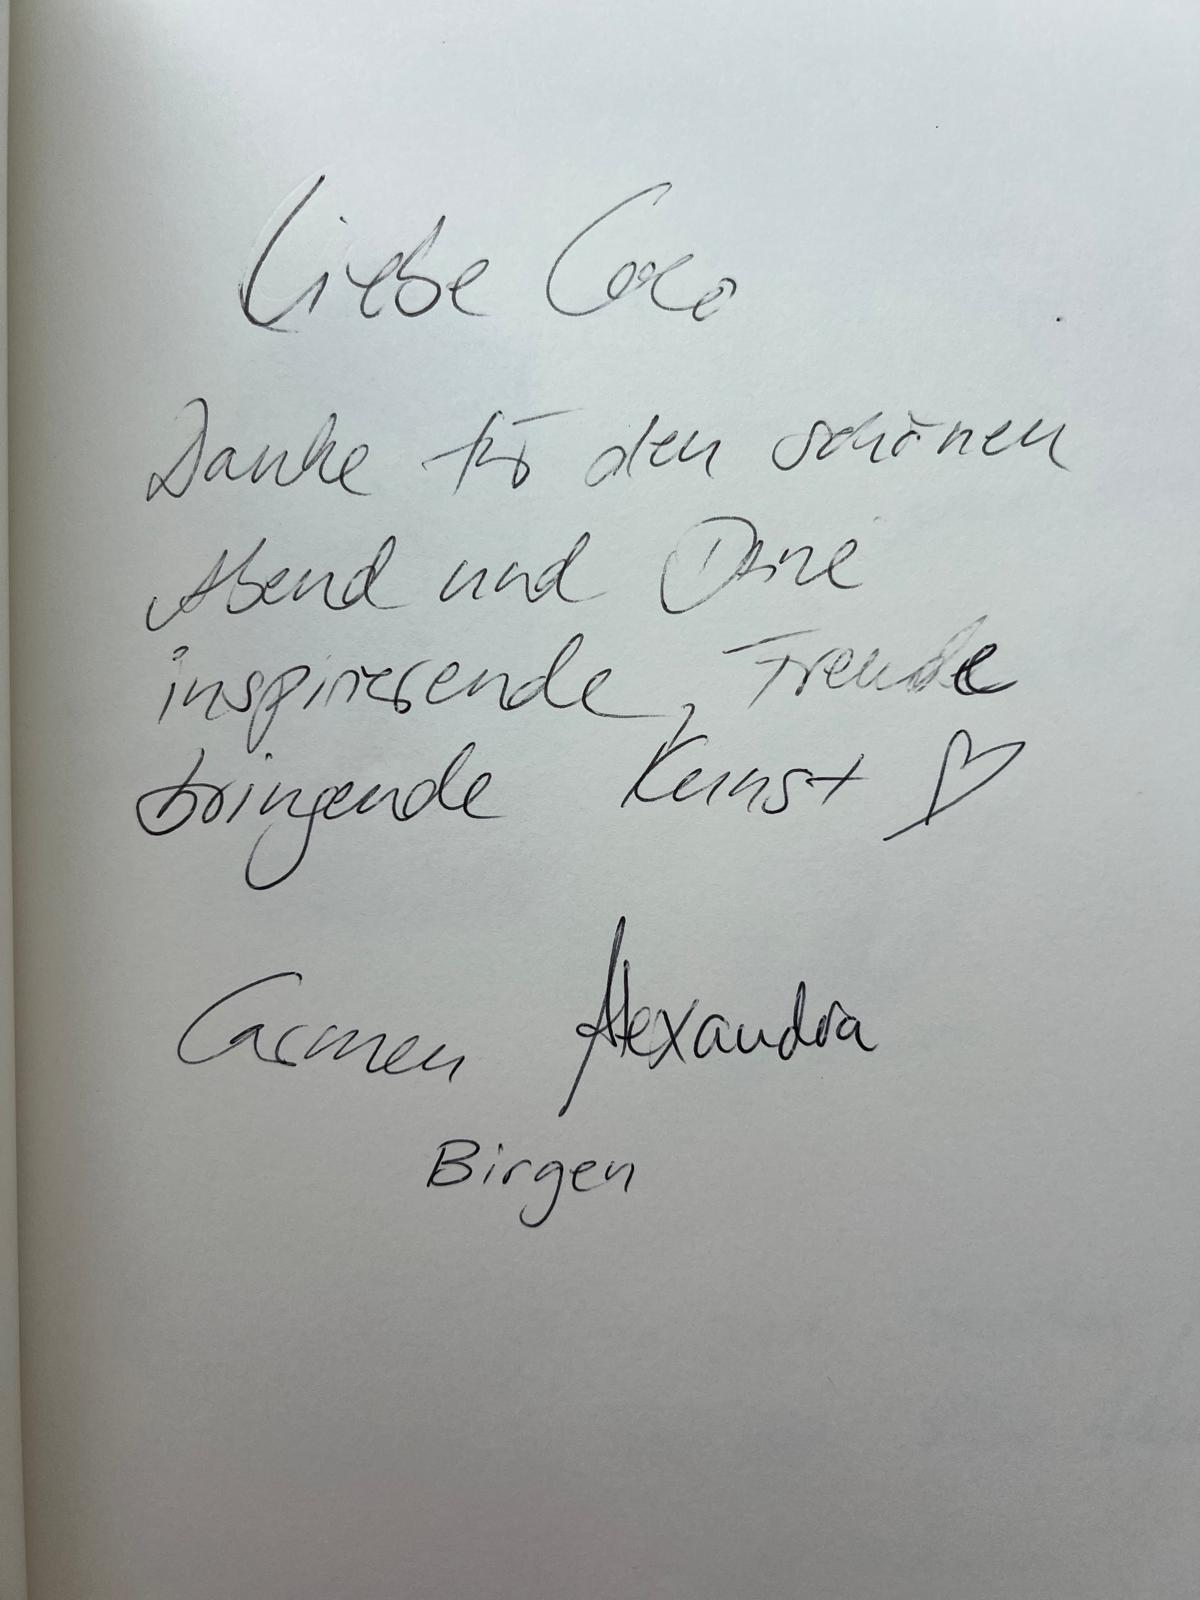 Liebe Coco
Danke für den schönen
Abend und Deine
inspirierende, Freude
bringende Kunst ♡
Carmen Alexandra
Birgen